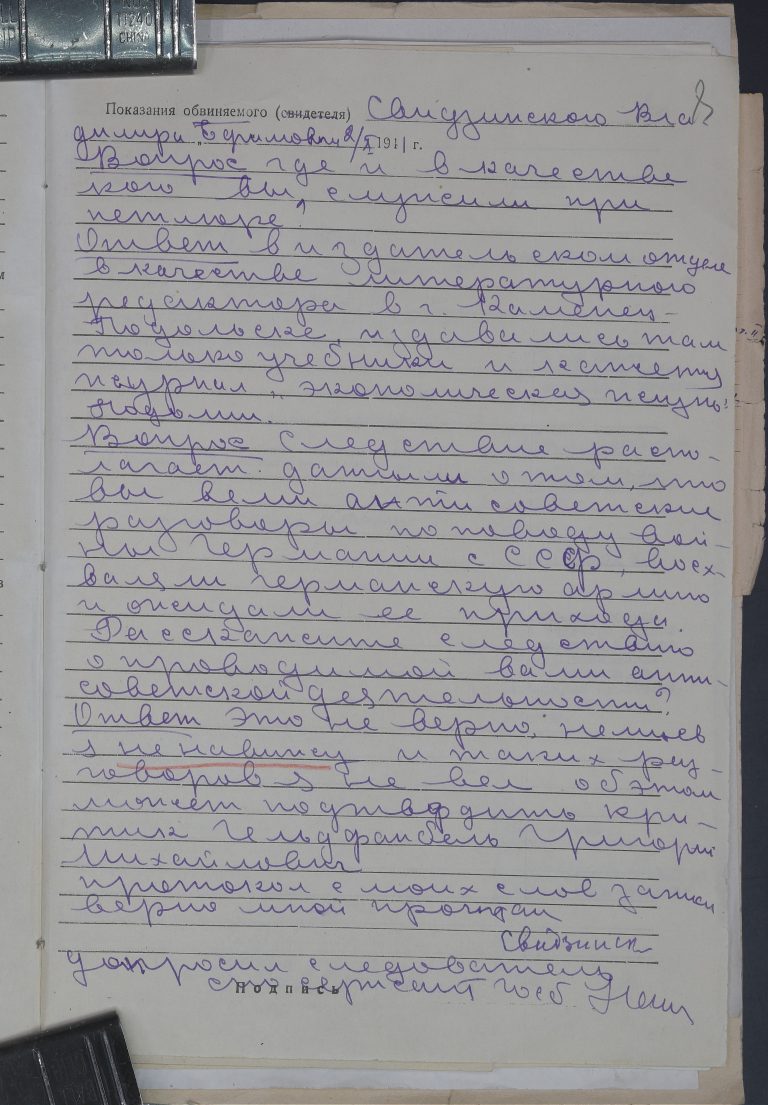 11240
CHINA
Показания обвиняемого (свидетеля) Свидзинского Вла
димира Ефимовича 2/X 1941 г.
Вопрос где и в качестве
кого вы служили при
петлюре?
Ответ в издательском отделе
в качестве литературного
редактора в г. Каменец-
Подольске, издавались там
только учебники и кажется
журнал „экономическая жизнь"
Подолии.
Вопрос Следствие распо-
лагает данными о том, что
вы вели антисоветские
разговоры по поводу вой-
ны Германии с СССР, восх-
валяли германскую армию
и ожидали ее прихода.
Расскажите следствию
о проводимой вами анти-
советской деятельности?
Ответ Это не верно, немцев
я ненавижу и таких раз-
говоров я не вел об этом
может подтвердить кри-
тик Гельдфанбель Григорий
Михайлович
протокол с моих слов записан
верно мной прочитан
Свидзинск
допросил следователь
сержант госб
Подпись